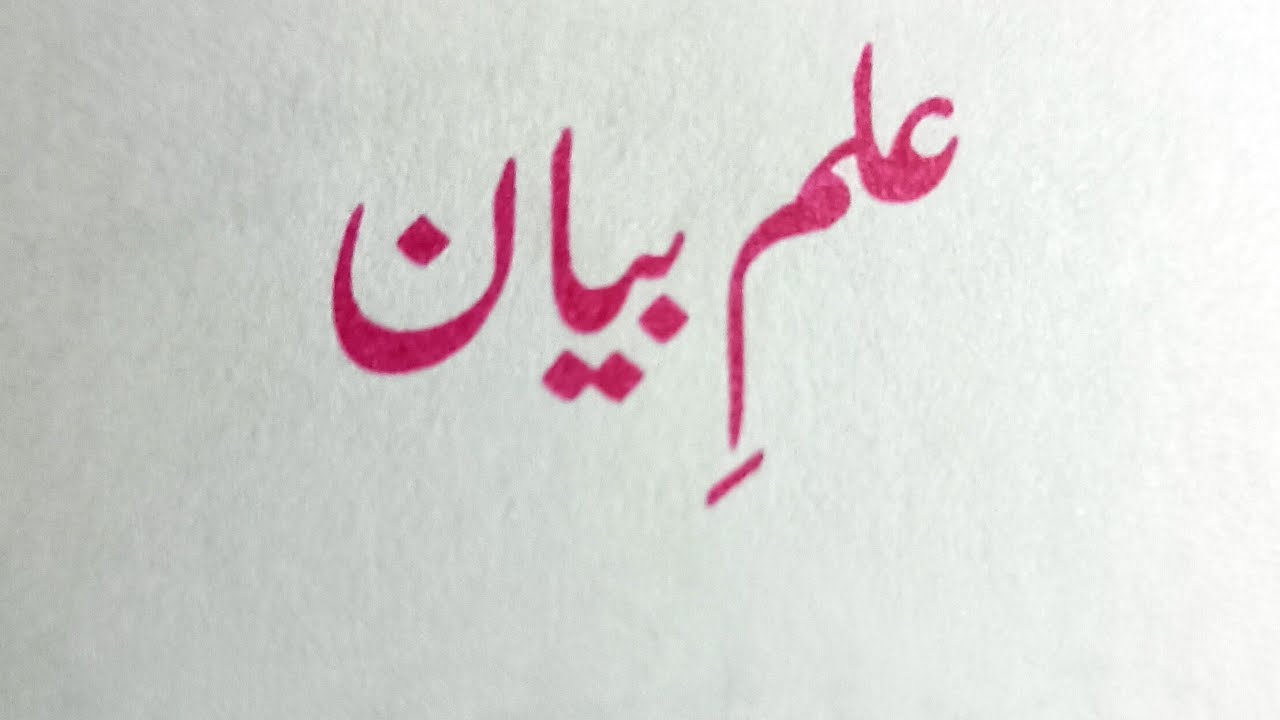 علمِ بیان